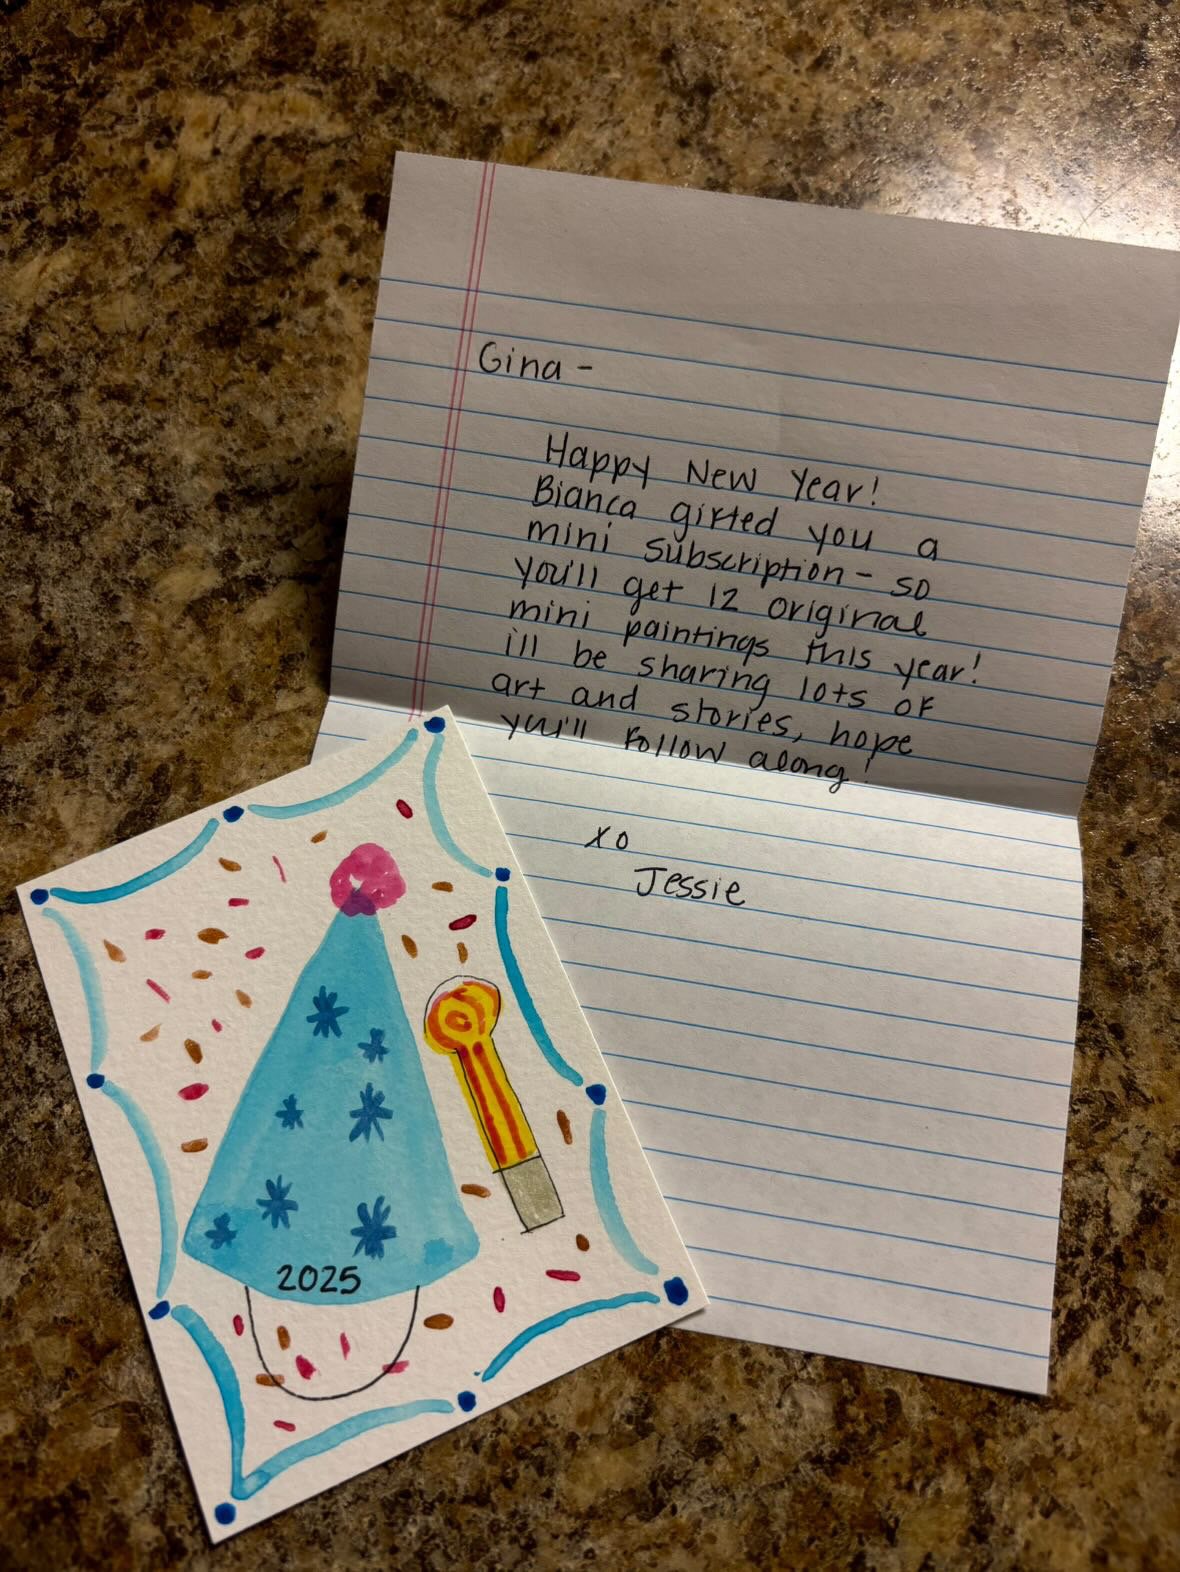 Gina -
Happy New Year!
Bianca gifted you a
mini subscription - so
you'll get 12 original
mini paintings this year!
i'll be sharing lots of
art and stories, hope
you'll follow along!
xo
Jessie
2025